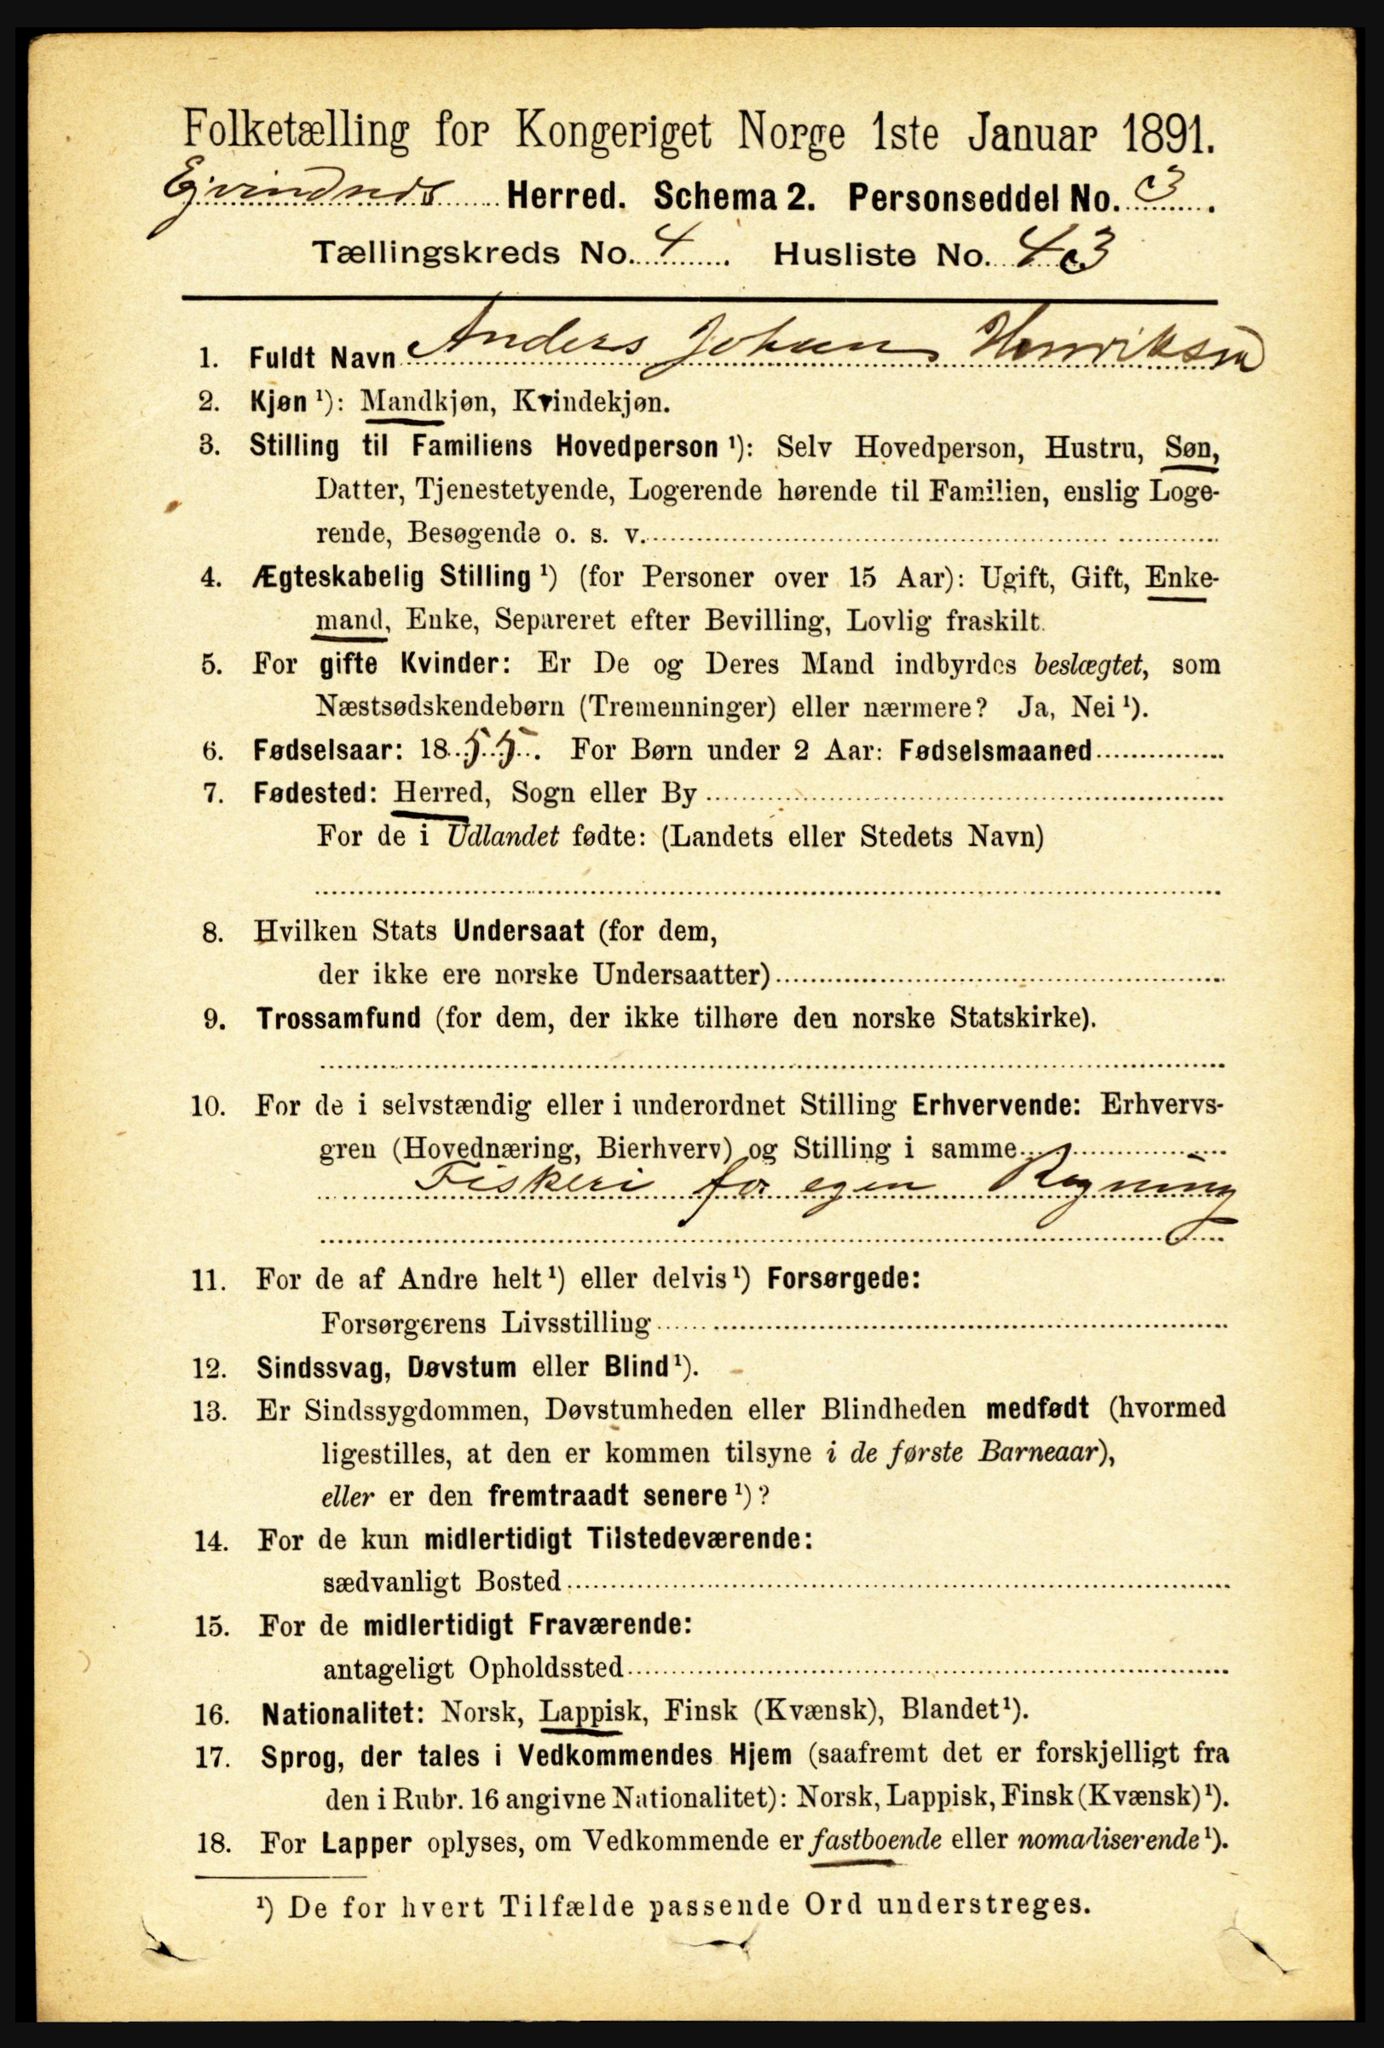 Folketælling for Kongeriget Norge 1ste Januar 1891.
Ejvindnes Herred. Schema 2. Personseddel No. 3.
Tællingskreds No. 4. Husliste No. 43
1. Fuldt Navn Anders Johan Henriksen
2. Kjøn ¹): Mandkjøn, Kvindekjøn.
3. Stilling til Familiens Hovedperson ¹): Selv Hovedperson, Hustru, Søn,
Datter, Tjenestetyende, Logerende hørende til Familien, enslig Loge-
rende, Besøgende o. s. v.
4. Ægteskabelig Stilling ¹) (for Personer over 15 Aar): Ugift, Gift, Enke-
mand, Enke, Separeret efter Bevilling, Lovlig fraskilt.
5. For gifte Kvinder: Er De og Deres Mand indbyrdes beslægtet, som
Næstsødskendebørn (Tremenninger) eller nærmere? Ja, Nei ¹).
6. Fødselsaar: 1855. For Børn under 2 Aar: Fødselsmaaned
7. Fødested: Herred, Sogn eller By
For de i Udlandet fødte: (Landets eller Stedets Navn)
8. Hvilken Stats Undersaat (for dem,
der ikke ere norske Undersaatter)
9. Trossamfund (for dem, der ikke tilhøre den norske Statskirke).
10. For de i selvstændig eller i underordnet Stilling Erhvervende: Erhvervs-
gren (Hovednæring, Bierhverv) og Stilling i samme
Fiskeri for egen Regning
11. For de af Andre helt ¹) eller delvis ¹) Forsørgede:
Forsørgerens Livsstilling
12. Sindssvag, Døvstum eller Blind ¹).
13. Er Sindssygdommen, Døvstumheden eller Blindheden medfødt (hvormed
ligestilles, at den er kommen tilsyne i de første Barneaar),
eller er den fremtraadt senere ¹)?
14. For de kun midlertidigt Tilstedeværende:
sædvanligt Bosted
15. For de midlertidigt Fraværende:
antageligt Opholdssted
16. Nationalitet: Norsk, Lappisk, Finsk (Kvænsk), Blandet ¹).
17. Sprog, der tales i Vedkommendes Hjem (saafremt det er forskjelligt fra
den i Rubr. 16 angivne Nationalitet): Norsk, Lappisk, Finsk (Kvænsk) ¹).
18. For Lapper oplyses, om Vedkommende er fastboende eller nomadiserende ¹).
¹) De for hvert Tilfælde passende Ord understreges.